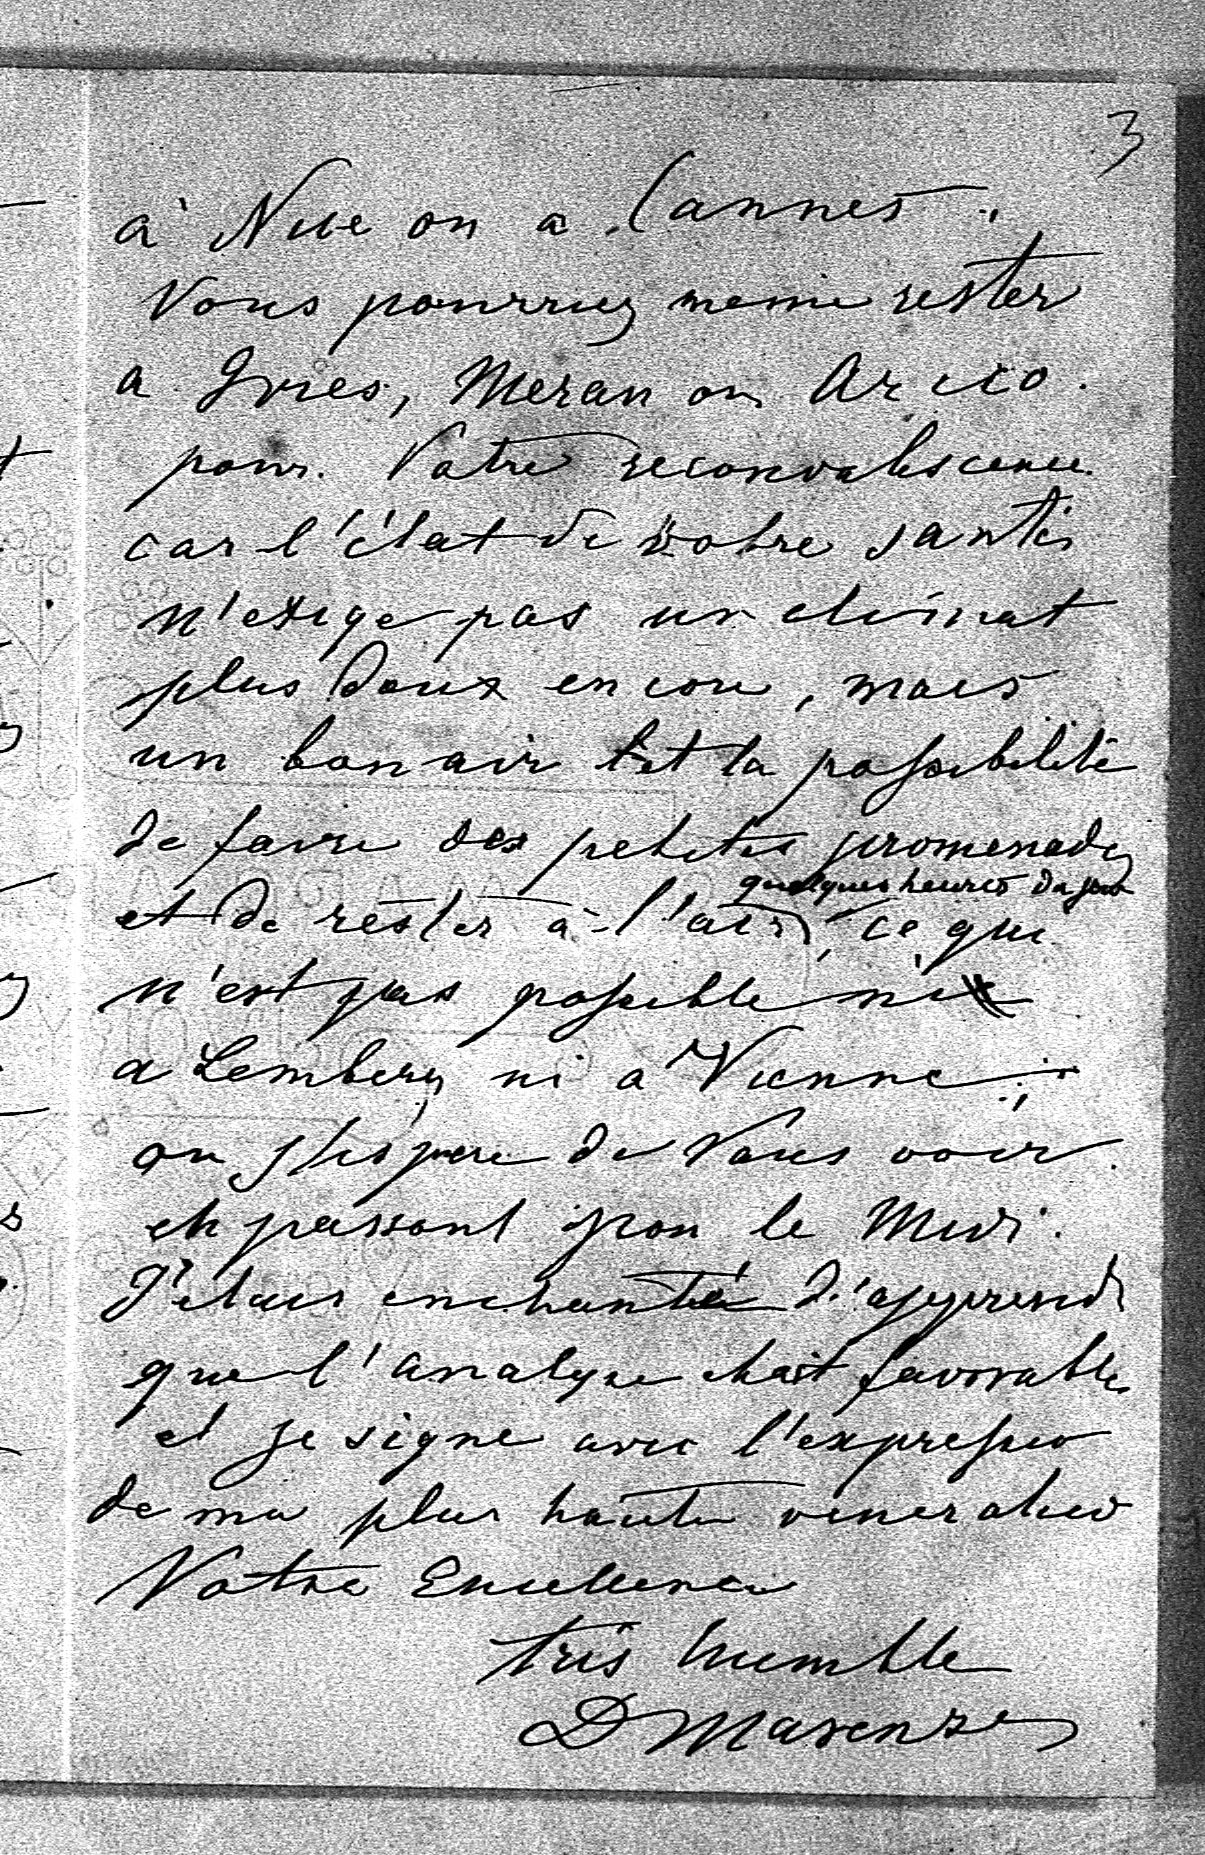 3
à Nice ou a Cannes.
Vous pourriez meme rester
a Gries, Meran ou Arco.
pour Votre reconvalescence
car l'état de votre santé
n'exige pas un climat
plus doux encore, mais
un bon air et la possibilité
de faire des petites promenades
quelques heures du jour
et de rester à l'air, ce qui
n'est pas possible ni
a Lemberg ni a Vienne;
on espere de Vous voir
en passant pour le Midi.
J'etais enchanté d'apprendr
que l'analyse etait favorable
et je signe avec l'expressio
de ma plus haute veneratio
Votre Excellence
très humble
D Marenze